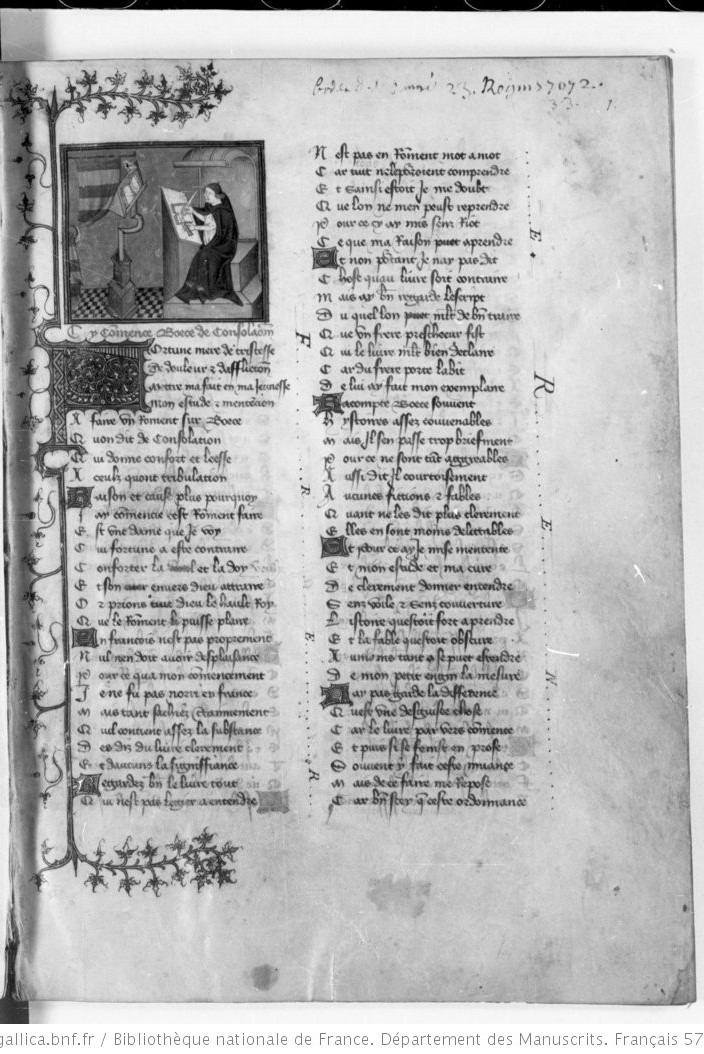 23. Regius 7072.
33.
1.
Cy Comence Boece de Consolaciom
Fortune mere de tristesse
De douleur & dafflictiom
mettre ma fait en ma jeunesse
mon estude & mentenciom
A faire vn Roment sur Boece
Quon dit de Consolatiom
Qui donne confort et leesse
A ceulx quont tribulatiom
Raison et cause plus pourquoy
J ay comencie cest Roment faire
E st vne dame que Je voy
C ui fortune a este contraire
C onforter la et la doy
E t son cuer envers dieu attraire
O r prions tuit dieu le hault Roy
Q ue le Roment li puisse plaire
En francois nest pas proprement
N ul nen doit auoir desplaisance
P our ce qua mon comencement
J e ne fu pas norri en france
M ais tant sachiez certainement
Q uil contient assez la substance
D es diz du liure clerement
E t daucuns la signiffiance
Regardez bn le liure tout
Q ui nest pas legier a entendre
N est pas en Roment mot a mot
C ar tuit ne le porroient comprendre
E t sainsi estoit Je me doubt
Q ue lon ne men peust reprendre
P our ce cy ay mis senz Riot
C e que ma Raison puet aprendre
Et non portant Je nay pas dit
C hose quau liure soit contraire
M ais ay bn regarde lescript
D u quel lon puet mlt de bn traire
Q ue vn frere prescheeur fist
Q ui le liure mlt bien declaire
C ar du frere porte labit
D e lui ay fait mon exemplaire
Racompte Boece souuent
H ystoires assez couuenables
M ais Jl sen passe trop briefment
P our ce ne sont tat aggreables
A ussi dit Jl courtoisement
A ucunes fictions & fables
Q uant ne les dit plus clerement
E lles en sont moins delittables
Et pour ce ay Je mise mentente
E t mon estude et ma cure
D e clerement donner entendre
S enz voile & senz couuerture
L istoire questoit fort a prendre
E t la fable questoit obscure
A u moins tant que se puet estendre
D e mon petit engin la mesure
Jay pas garde la difference
Q uest vne desguisee chose
C ar le liure par vers comence
E t puis si se fenist en prose
S ouuent y fait ceste muance
M ais de ce faire me Repose
C ar bn scey que ceste ordonnance
F
.
R
.
E
.
R
E.
R
E
N
gallica.bnf.fr / Bibliothèque nationale de France. Département des Manuscrits. Français 57